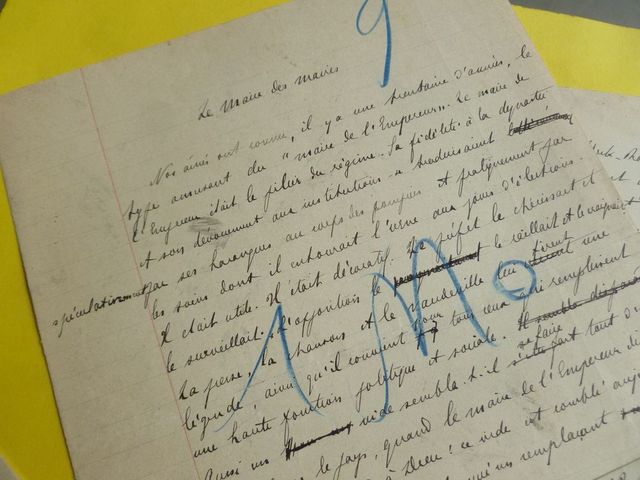 9
Le Maire des maires
Nos aînés ont connu, il y a une trentaine d'années, le
type amusant du "maire de l'Empereur". Le maire de
l'Empereur était le pilier du régime. Sa fidélité à la dynastie
et son dévouement aux institutions se traduisaient
par ses harangues au corps des pompiers et pratiquement par
les soins dont il entourait l'urne aux jours d'élections.
Il était utile. Il était décoratif. Le préfet le chérissait et
spéculativement
le surveillait. L'opposition le raillait et le craignait
La presse, la chanson et le vaudeville lui firent une
légende, ainsi qu'il convient pour tous ceux qui remplissent
une haute fonction politique et sociale.
Aussi un vide sembla-t-il se faire tout d'
le pays, quand le maire de l'Empereur
à Dieu! ce vide est comblé
un remplaçant
1 Mo